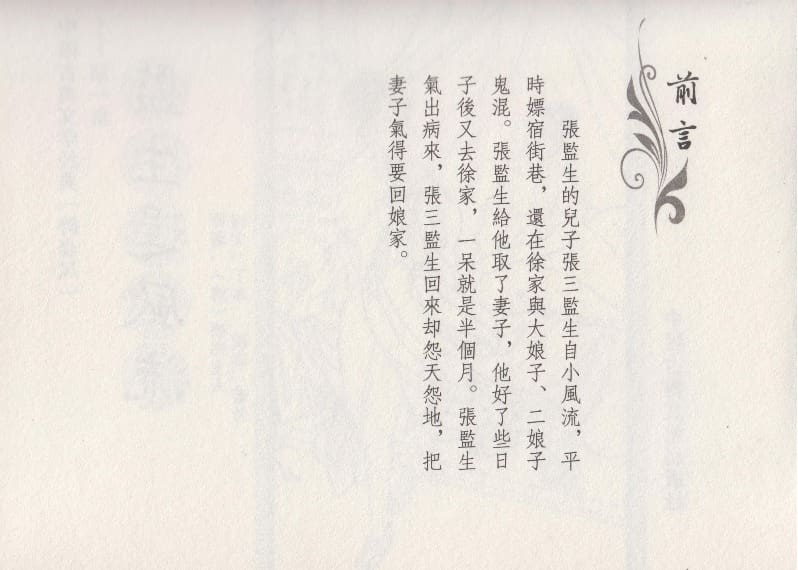 前言
張監生的兒子張三監生自小風流，平
時嫖宿街巷，還在徐家與大娘子、二娘子
鬼混。張監生給他取了妻子，他好了些日
子後又去徐家，一呆就是半個月。張監生
氣出病來，張三監生回來却怨天怨地，把
妻子氣得要回娘家。